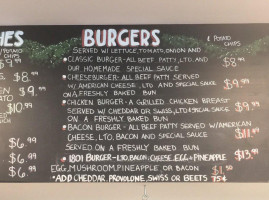 HES BURGERS
POTATO CHIPS
SERVED W/ LETTUCE, TOMATO, ONION AND
POTATO CHIPS
CLASSIC BURGER - ALL BEEF PATTY, LTO, AND $8.99
OUR HOMEMADE SPECIAL SAUCE
CHEESEBURGER - ALL BEEF PATTY SERVED
W/ AMERICAN CHEESE, LTO AND SPECIAL SAUCE $9.99
ON A FRESHLY BAKED BUN
CHICKEN BURGER - A GRILLED CHICKEN BREAST $9.99
SERVED W/ CHEDDAR OR SWISS, LTO &
ON A FRESHLY BAKED BUN
BACON BURGER - ALL BEEF PATTY SERVED W/ AMERICAN
CHEESE, LTO, BACON AND SPECIAL SAUCE $11.99
SERVED ON A FRESHLY BAKED BUN
1801 BURGER - LTO, BACON, CHEESE, EGG & PINEAPPLE $13.99
EGG, MUSHROOM, PINEAPPLE OR BACON $1.50
*ADD CHEDDAR, PROVOLONE, SWISS OR BEETS 75¢
$8.99
9.99
$10.99
$6.99
$6.99
$6.99